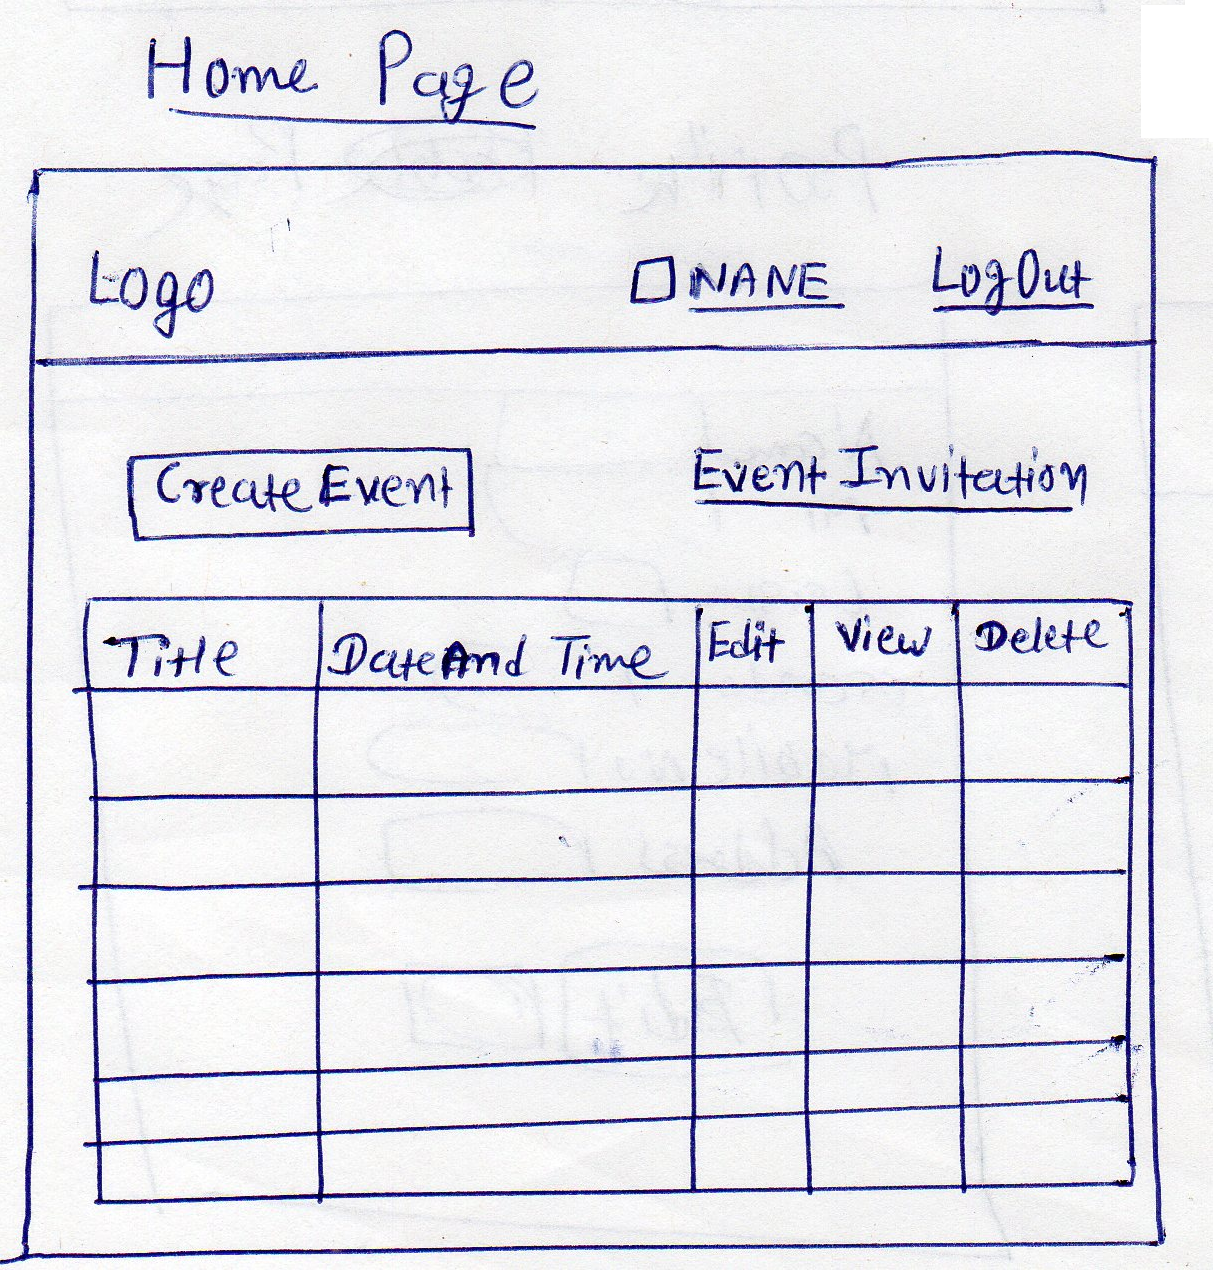 Home Page
Logo NANE LogOut
Create Event Event Invitation
Title Date And Time Edit View Delete